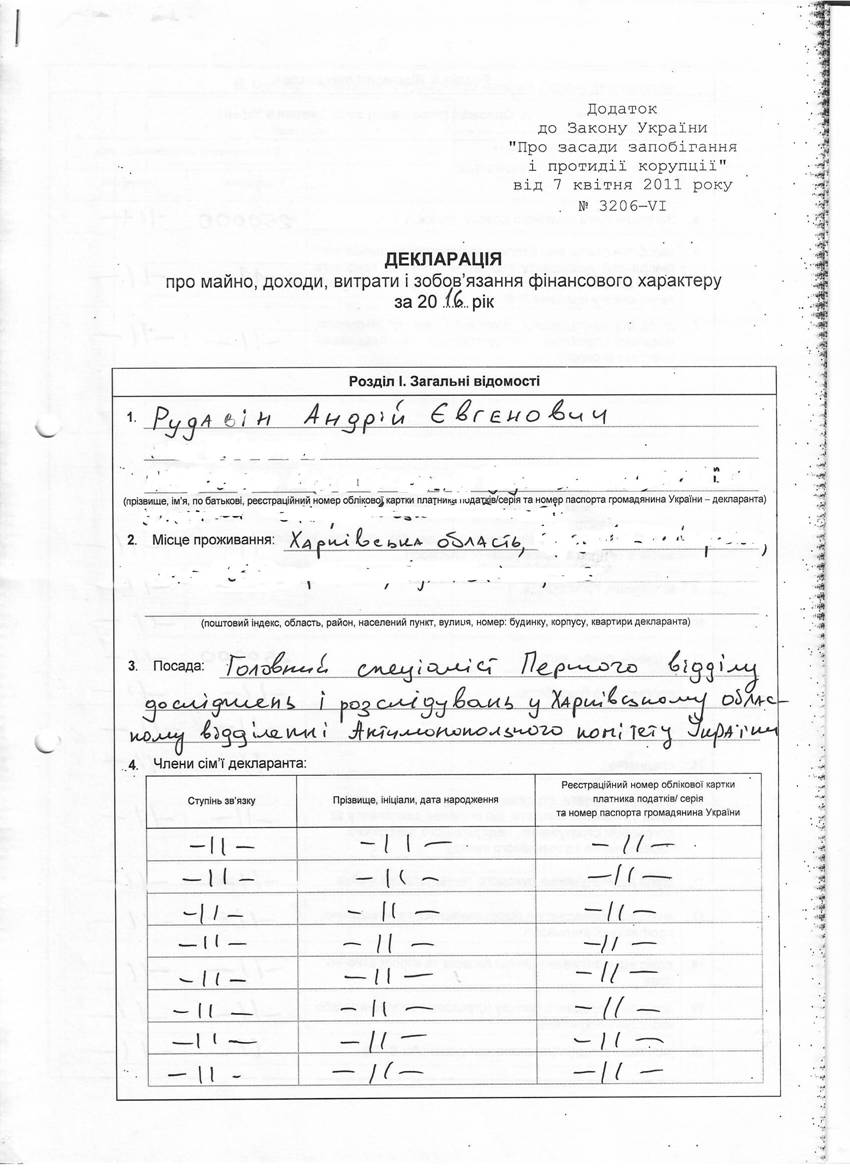 Додаток
до Закону України
"Про засади запобігання
і протидії корупції"
від 7 квітня 2011 року
№ 3206-VI
ДЕКЛАРАЦІЯ
про майно, доходи, витрати і зобов'язання фінансового характеру
за 2016 рік
Розділ І. Загальні відомості
1. Рудавін Андрій Євгенович
(прізвище, ім'я, по батькові, реєстраційний номер облікової картки платника податків/серія та номер паспорта громадянина України – декларанта)
2. Місце проживання: Харківська область,
(поштовий індекс, область, район, населений пункт, вулиця, номер: будинку, корпусу, квартири декларанта)
3. Посада: Головний спеціаліст Першого відділу
досліджень і розслідувань у Харківському облас-
ному відділенні Антимонопольного комітету України
4. Члени сім'ї декларанта:
Ступінь зв'язку
Прізвище, ініціали, дата народження
Реєстраційний номер облікової картки
платника податків/ серія
та номер паспорта громадянина України
-11- -11- -11-
-11- -11- -11-
-11- -11- -11-
-11- -11- -11-
-11- -11- -11-
-11- -11- -11-
-11- -11- -11-
-11- -11- -11-